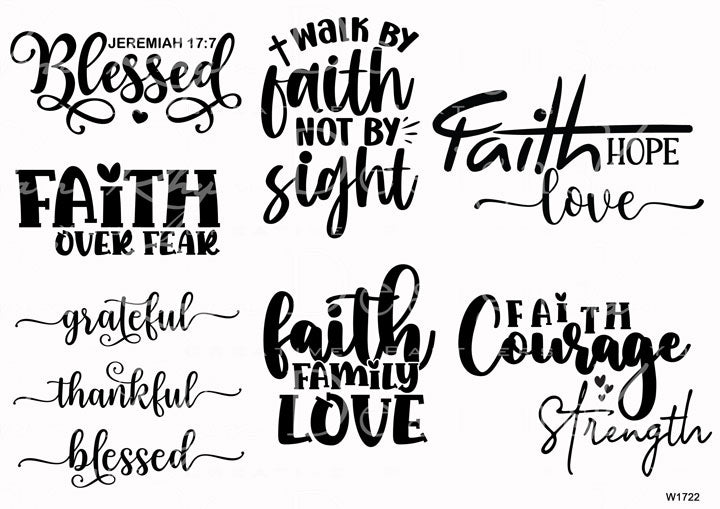 JEREMIAH 17:7
Blessed
WALK BY
faith
NOT BY
sight
Faith
HOPE
love
FAITH
OVER FEAR
grateful
thankful
blessed
faith
FAMILY
LOVE
FAITH
Courage
Strength
W1722